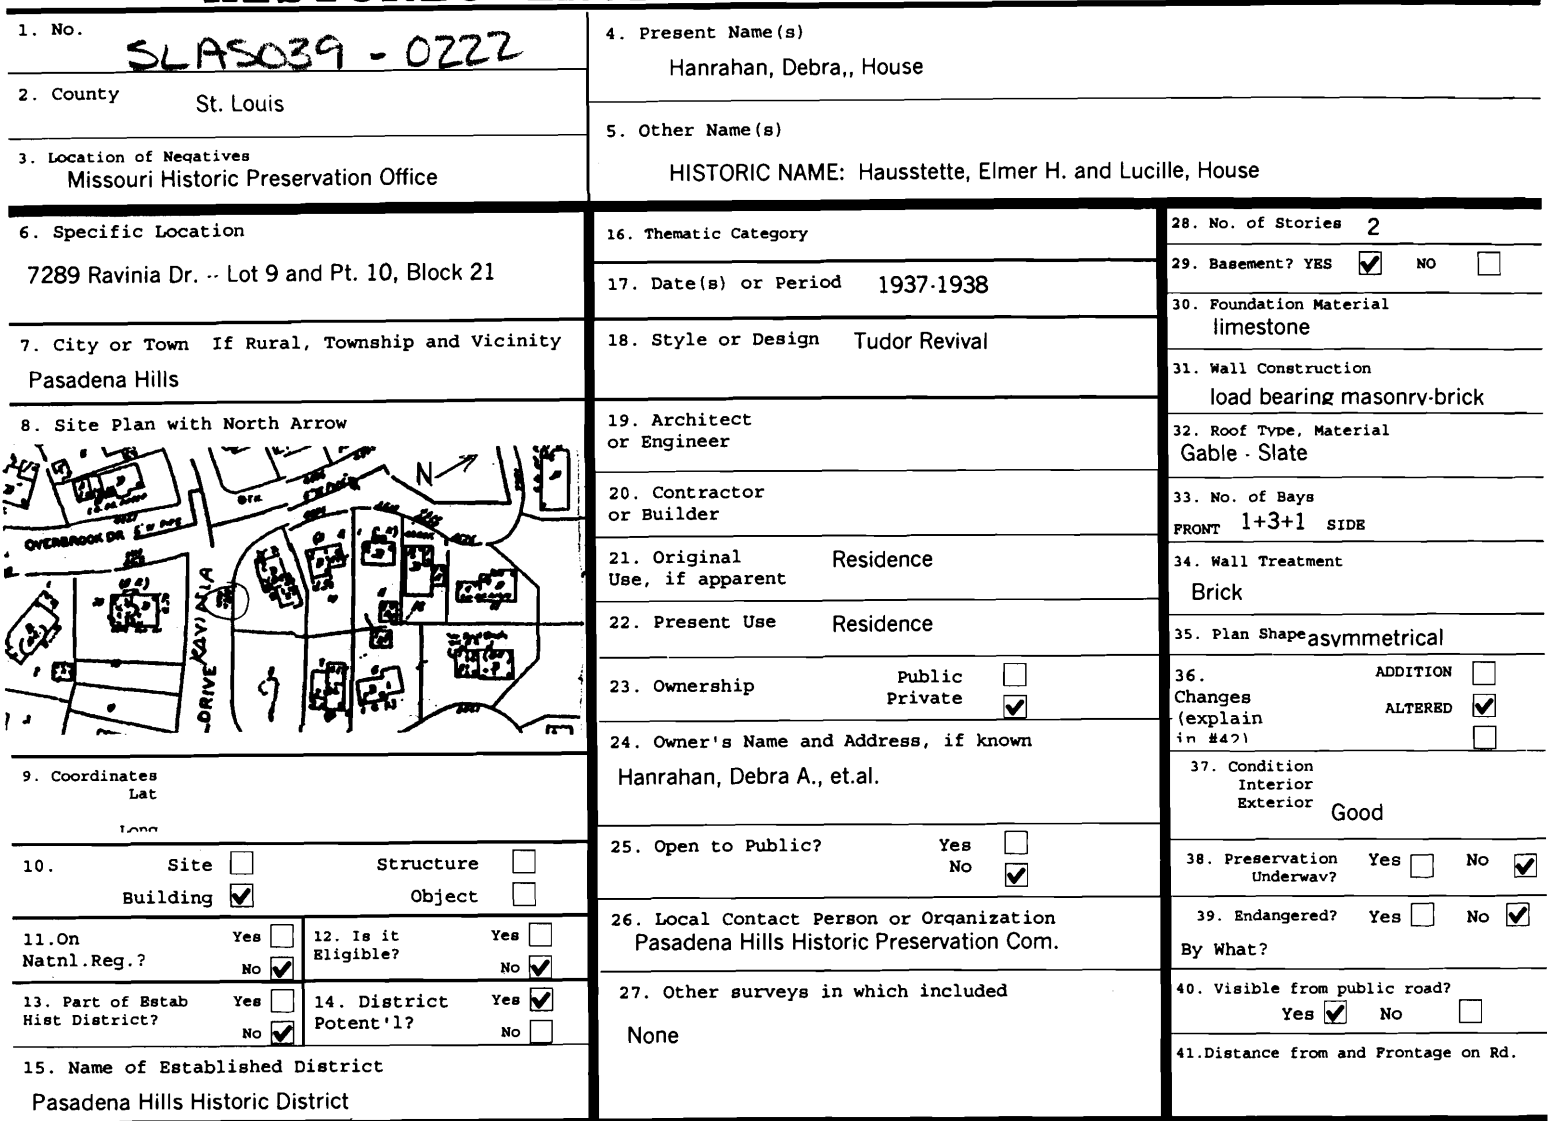 1. No.
SLAS039 - 0222
2. County
St. Louis
3. Location of Negatives
Missouri Historic Preservation Office
4. Present Name(s)
Hanrahan, Debra,, House
5. Other Name(s)
HISTORIC NAME: Hausstette, Elmer H. and Lucille, House
6. Specific Location
7289 Ravinia Dr. -- Lot 9 and Pt. 10, Block 21
7. City or Town If Rural, Township and Vicinity
Pasadena Hills
8. Site Plan with North Arrow
N
OVERBROOK DR
DRIVE RAVINIA
9. Coordinates
Lat
Long
10. Site Structure
Building Object
11.On Yes
Natnl.Reg.? No
12. Is it Yes
Eligible? No
13. Part of Estab Yes
Hist District? No
14. District Yes
Potent'l? No
15. Name of Established District
Pasadena Hills Historic District
16. Thematic Category
17. Date(s) or Period 1937-1938
18. Style or Design Tudor Revival
19. Architect
or Engineer
20. Contractor
or Builder
21. Original Residence
Use, if apparent
22. Present Use Residence
23. Ownership Public
Private
24. Owner's Name and Address, if known
Hanrahan, Debra A., et.al.
25. Open to Public? Yes
No
26. Local Contact Person or Organization
Pasadena Hills Historic Preservation Com.
27. Other surveys in which included
None
28. No. of Stories 2
29. Basement? YES NO
30. Foundation Material
limestone
31. Wall Construction
load bearing masonry-brick
32. Roof Type, Material
Gable - Slate
33. No. of Bays
FRONT 1+3+1 SIDE
34. Wall Treatment
Brick
35. Plan Shape asymmetrical
36. ADDITION
Changes ALTERED
(explain
in #42)
37. Condition
Interior
Exterior Good
38. Preservation Yes No
Underway?
39. Endangered? Yes No
By What?
40. Visible from public road?
Yes No
41.Distance from and Frontage on Rd.